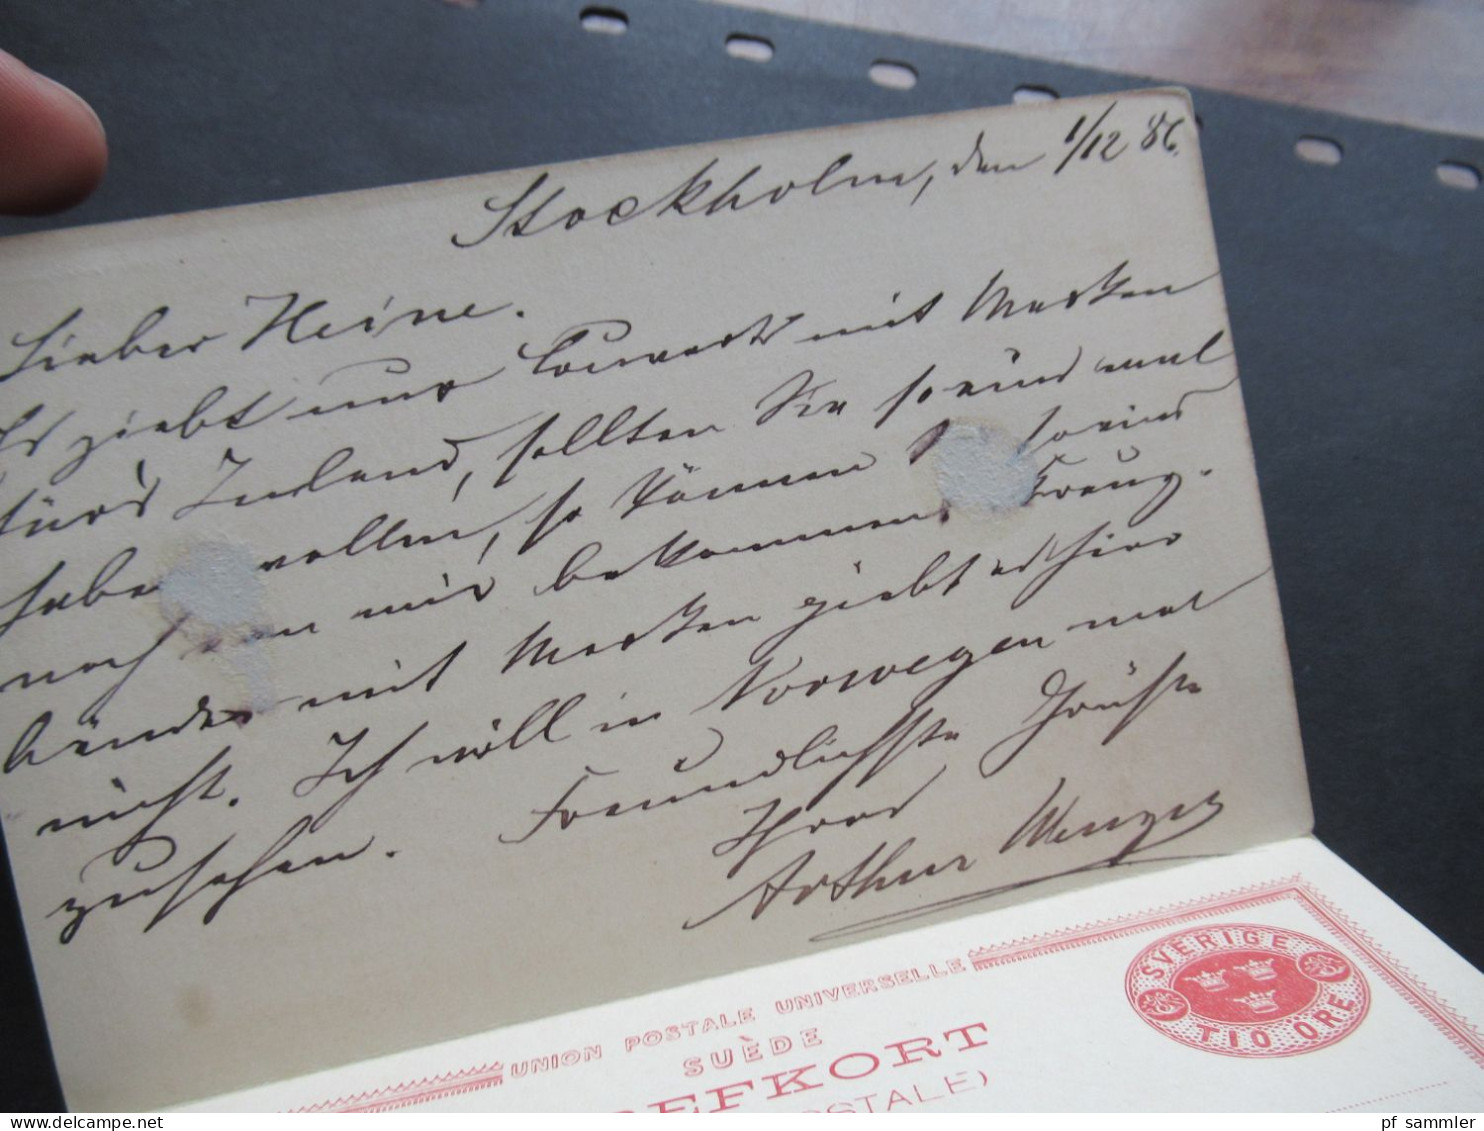 Stockholm, den 1/12 86.
Lieber Heine.
Es giebt nur Couverts mit Marken
fürs Inland, sollten Sie so ein mal
haben wollen, so können so eins
noch von mir bekommen. Kreuz-
bänder mit Marken giebt es hier
nicht. Ich will in Norwegen mal
zusehen. Freundlichste Grüsse
Ihres
Arthur
UNION POSTALE UNIVERSELLE
SUÈDE
EFKORT
OSTALE)
SVERIGE
TIO ÖRE
pf sammler